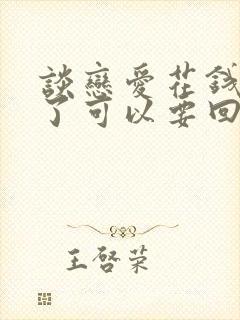 談戀愛花錢
了可以要回
王啓荣